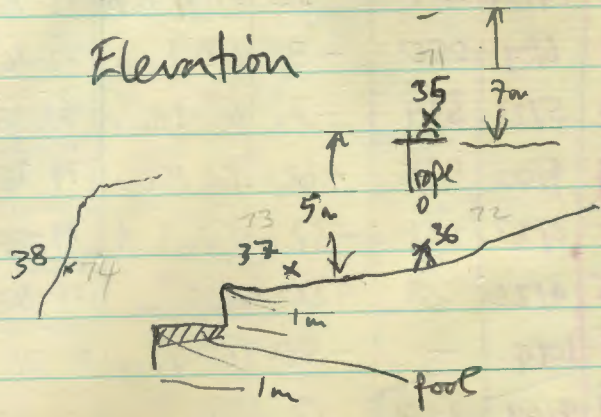 Elevation
71
35
7m
rope
5m
73
72
37
36
38
74
1m
pool
1m